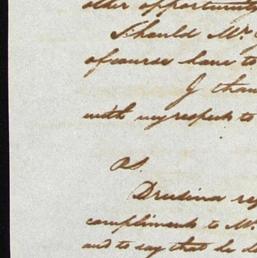 other opportunity
Should Mr.
of course have to
I than
with my respects to
P.S.
Drusina re
compliments to Mr.
and to say that he de